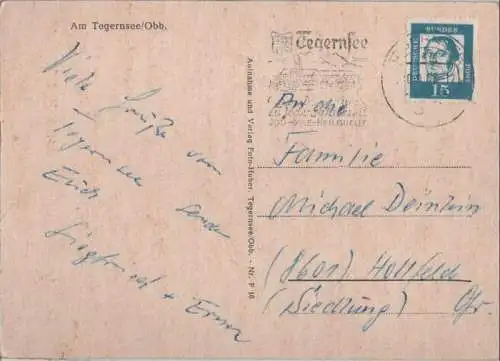 Am Tegernsee/Obb.
Viele Grüße vom
Tegernsee senden
Euch
Siegfried + Erna
Aufnahme und Verlag Foto-Huber, Tegernsee/Obb. - Nr. P 18
Tegernsee
DEUTSCHE
BUNDES
POST
15
An die
Familie
Michael Deinlein
(8601) Hollfeld
(Siedlung) Ofr.